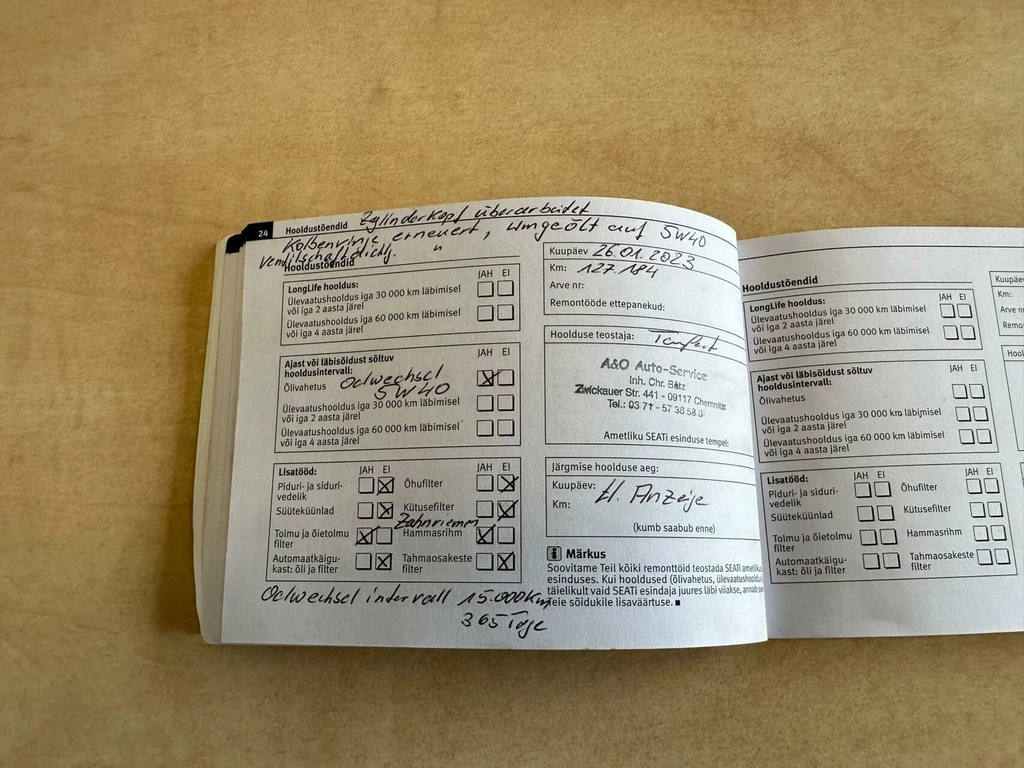 24 Hooldustõendid Zylinderkopf überarbeitet
Kolbenringe erneuert, umgeölt auf 5W40
Ventilschaftdicht. "
Hooldustõendid
JAH EI
LongLife hooldus:
Ülevaatushooldus iga 30 000 km läbimisel
või iga 2 aasta järel
Ülevaatushooldus iga 60 000 km läbimisel
või iga 4 aasta järel
Ajast või läbisõidust sõltuv
hooldusintervall:
JAH EI
Õlivahetus Oelwechsel
5W40
Ülevaatushooldus iga 30 000 km läbimisel
või iga 2 aasta järel
Ülevaatushooldus iga 60 000 km läbimisel
või iga 4 aasta järel
Lisatööd: JAH EI JAH EI
Piduri- ja siduri-
vedelik
Õhufilter
Süüteküünlad
Kütusefilter
Zahnriemen
Tolmu ja õietolmu
filter
Hammasrihm
Automaatkäigu-
kast: õli ja filter
Tahmaosakeste
filter
Oelwechsel intervall 15.000Km
365 Tage
Kuupäev 26.01.2023
Km: 127.184
Arve nr:
Remontööde ettepanekud:
Hoolduse teostaja:
A&O Auto-Service
Inh. Chr. Bätz
Zwickauer Str. 441 - 09117 Chemnitz
Tel.: 03 71 - 57 38 58 0
Ametliku SEATi esinduse tempel:
Järgmise hoolduse aeg:
Kuupäev: lt. Anzeige
Km:
(kumb saabub enne)
i Märkus
Soovitame Teil kõiki remonttöid teostada SEATi
esinduses. Kui hooldused (õlivahetus,
täielikult vaid SEATi esindaja juures läbi viiakse,
Teie sõidukile lisaväärtuse. ■
Hooldustõendid
LongLife hooldus: JAH EI
Ülevaatushooldus iga 30 000 km läbimisel
või iga 2 aasta järel
Ülevaatushooldus iga 60 000 km läbimisel
või iga 4 aasta järel
Ajast või läbisõidust sõltuv
hooldusintervall:
JAH EI
Õlivahetus
Ülevaatushooldus iga 30 000 km läbimisel
või iga 2 aasta järel
Ülevaatushooldus iga 60 000 km läbimisel
või iga 4 aasta järel
Lisatööd: JAH EI JAH EI
Piduri- ja siduri-
vedelik
Õhufilter
Süüteküünlad
Kütusefilter
Tolmu ja õietolmu
filter
Hammasrihm
Automaatkäigu-
kast: õli ja filter
Tahmaosakeste
filter
Km:
Arve nr